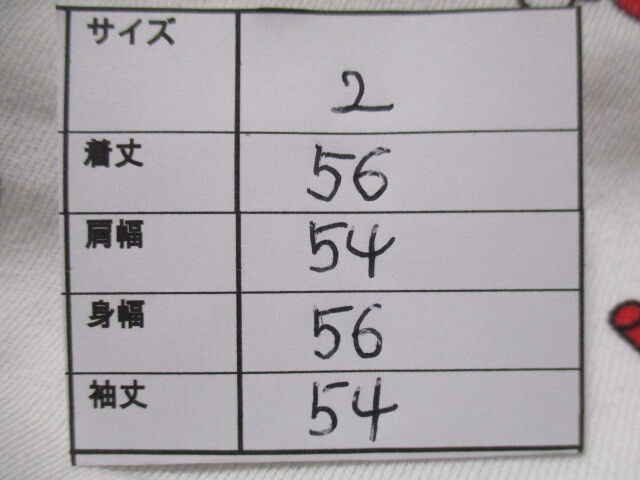 サイズ 2
着丈 56
肩幅 54
身幅 56
袖丈 54